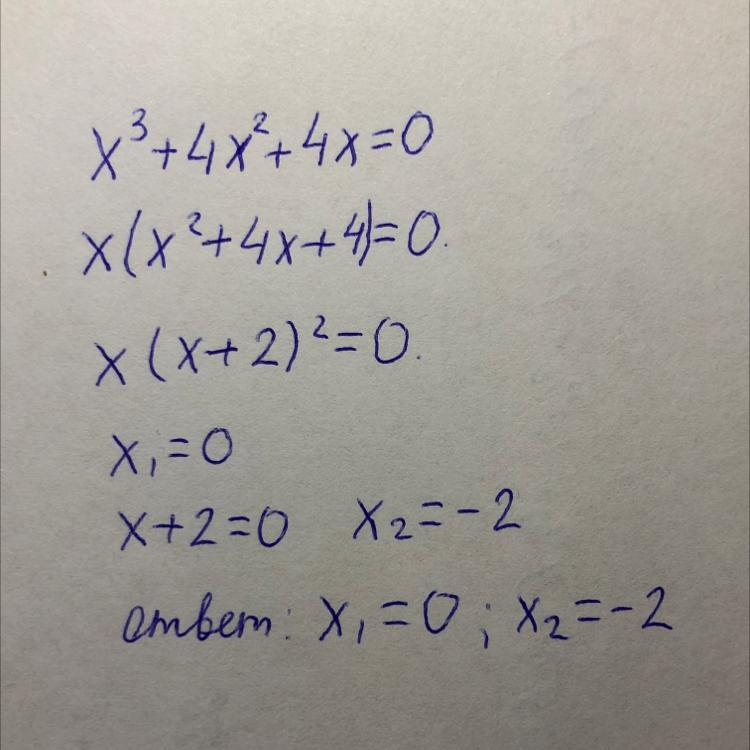 x³+4x²+4x=0
x(x²+4x+4)=0.
x(x+2)²=0.
x₁=0
x+2=0 x₂=-2
ответ: x₁=0; x₂=-2